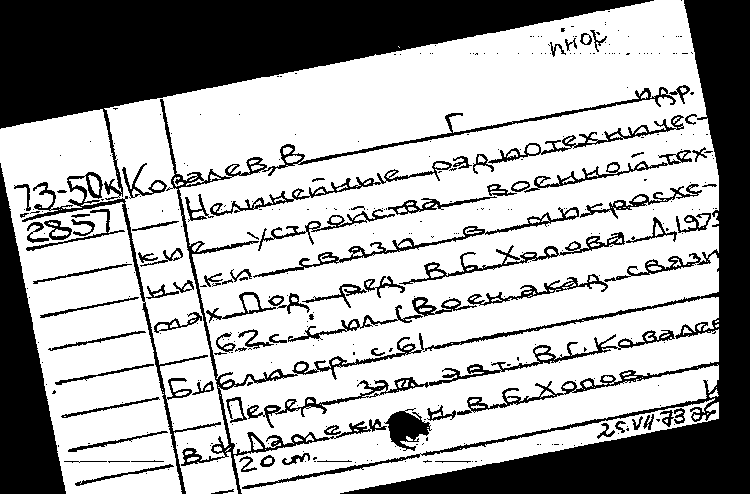 ПНОР
73-50к Ковалев, В Г и др.
2857 Нелинейные радиотехничес-
кие устройства военной тех-
ники связи в микросхе-
мах Под ред В. Б. Хопова. Л, 1973
62 с. с ил (Воен акад связи
Библиогр: с. 61
Перед загл. авт: В. Г. Ковалев
В. Ф. Ламекин, В. Б. Хопов.
20 cm. 25. VII-73